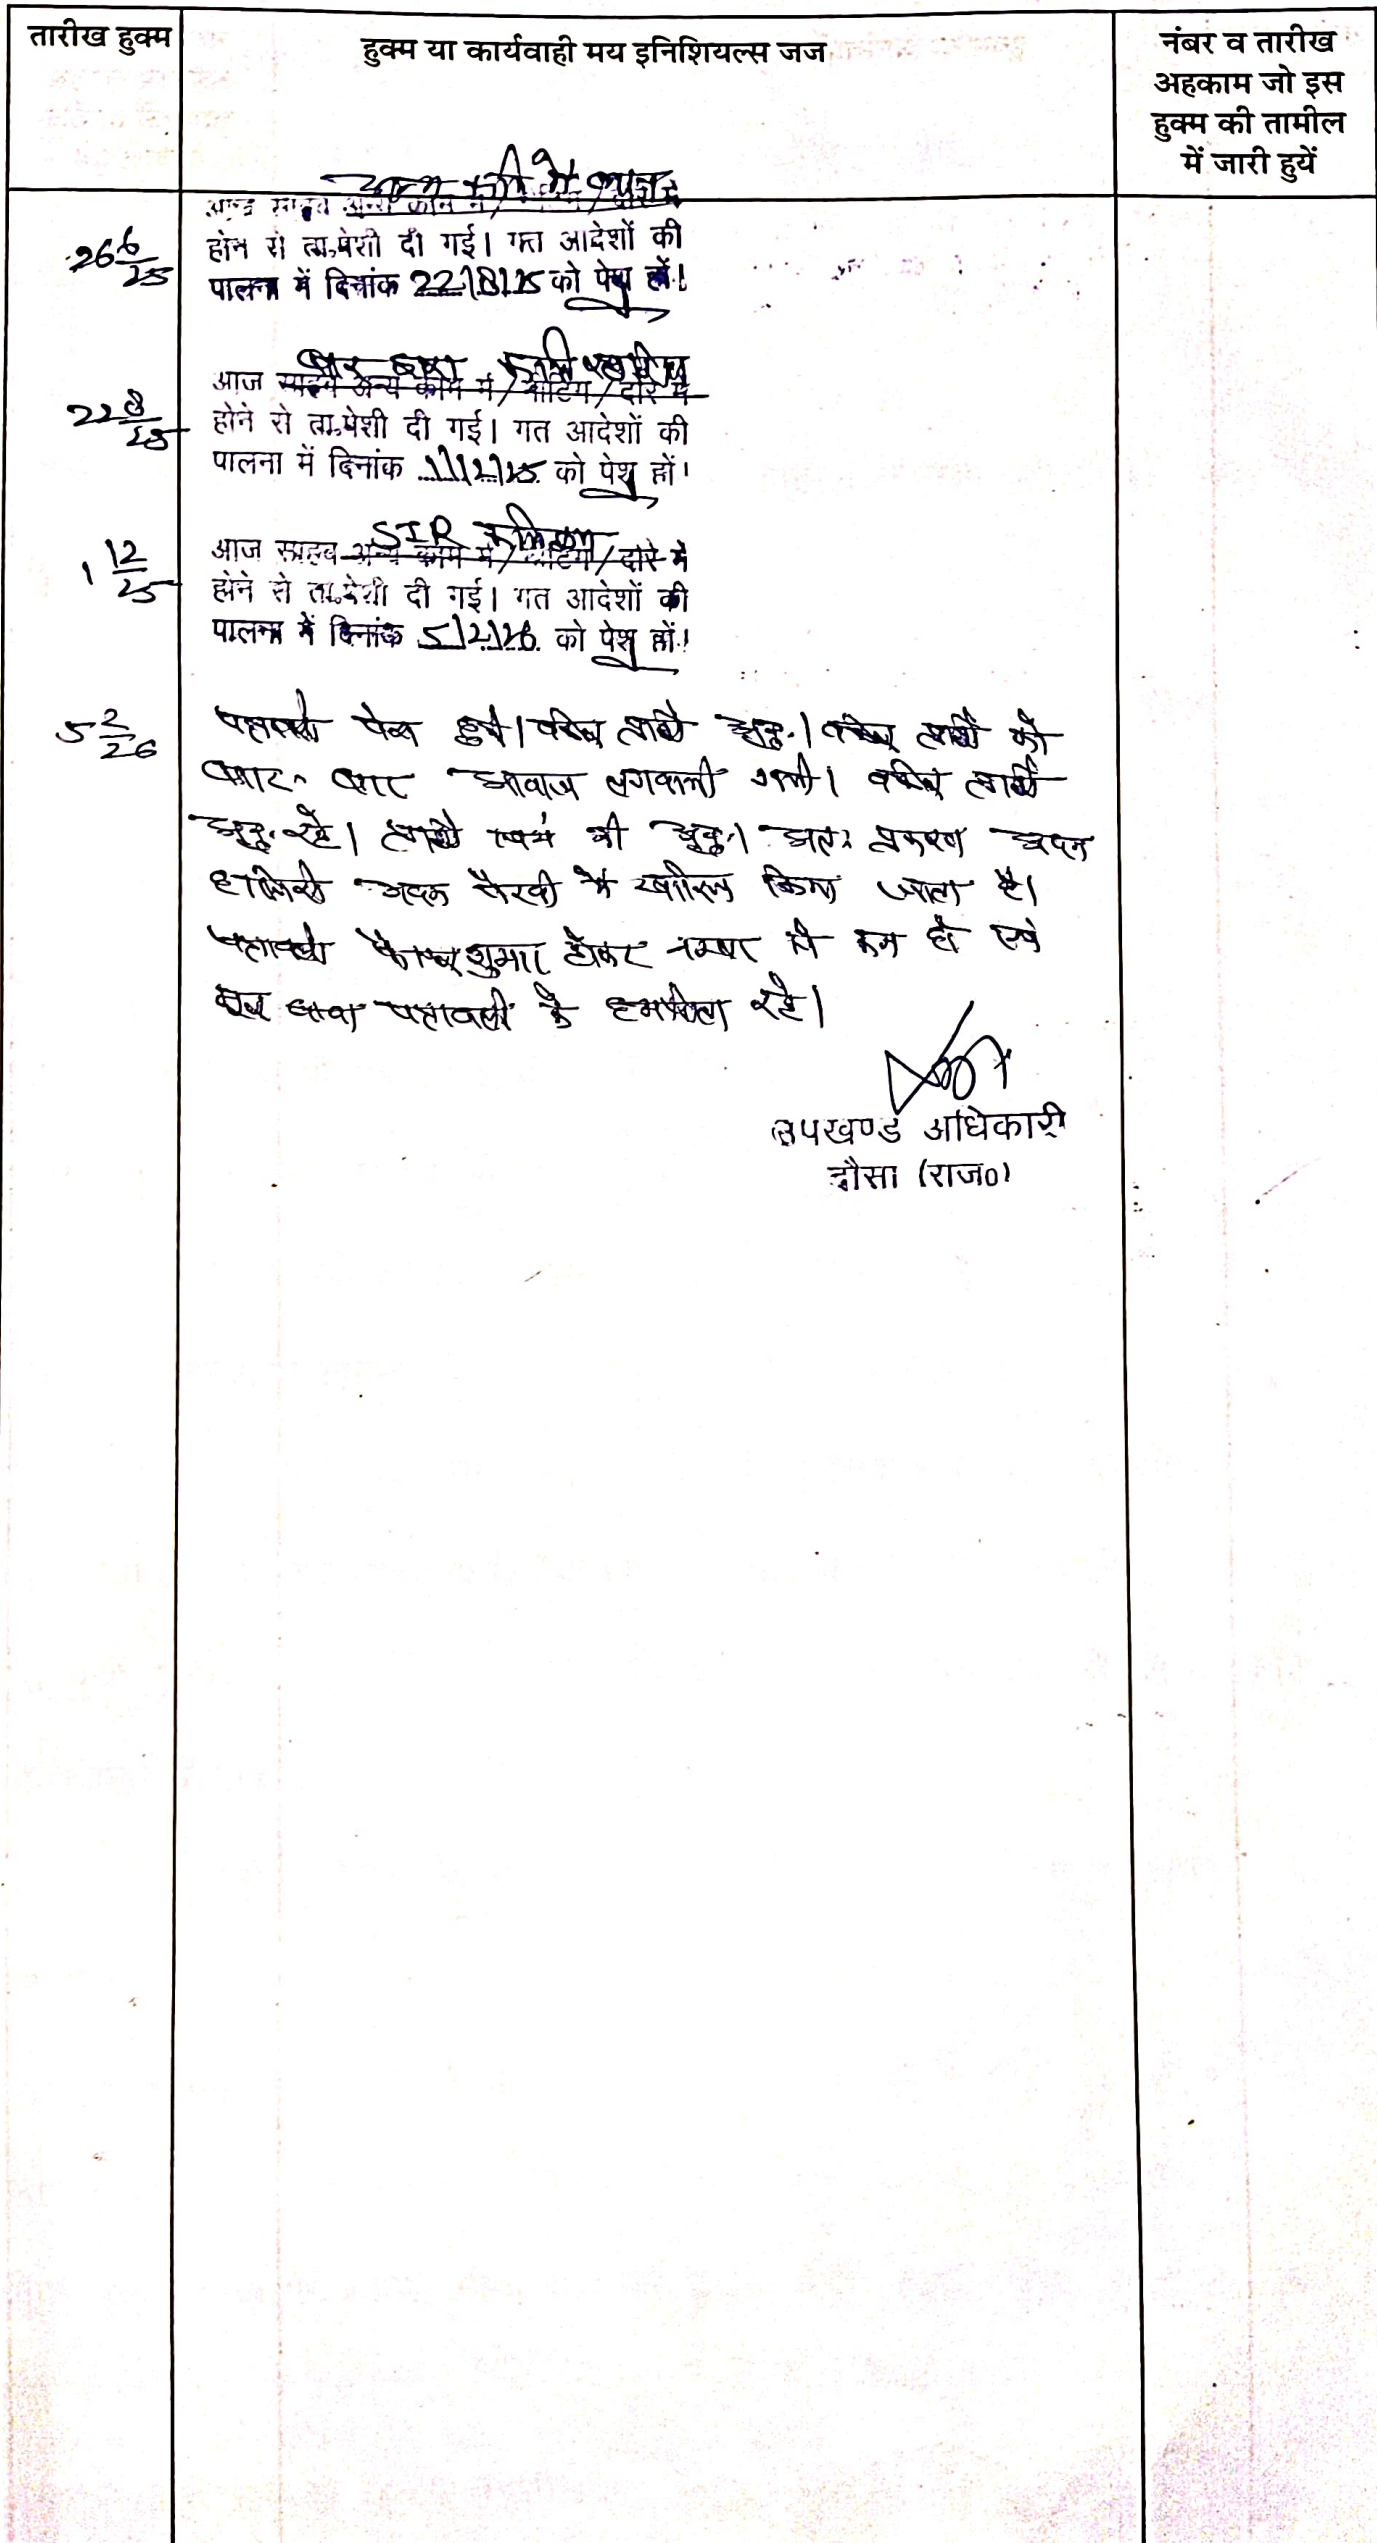 तारीख हुक्म
हुक्म या कार्यवाही मय इनिशियल्स जज
नंबर व तारीख
अहकाम जो इस
हुक्म की तामील
में जारी हुयें
26 6/25
आज साहब अन्य काम में / मीटिंग / दौरे में
होने से ता.पेशी दी गई। गत आदेशों की
पालना में दिनांक 22/8/25 को पेश हों।
22 8/25
आज साहब अन्य काम में / मीटिंग / दौरे में
होने से ता.पेशी दी गई। गत आदेशों की
पालना में दिनांक 1/12/25 को पेश हों।
1 12/25
SIR
आज साहब अन्य काम में / मीटिंग / दौरे में
होने से ता.पेशी दी गई। गत आदेशों की
पालना में दिनांक 5/2/26 को पेश हों।
5 2/26
पत्रावली पेश हुयी। वकील प्रार्थी अनु.। वकील प्रार्थी को
बार-बार आवाज लगवायी गयी। वकील प्रार्थी
अनु. रहे। प्रार्थी स्वयं भी अनु.। अतः प्रकरण अदम
हाजिरी अदम पैरवी में खारिज किया जाता है।
पत्रावली फैसल शुमार होकर नम्बर से कम हो एवं
मूल वाद पत्रावली के हमफीता रहे।
उपखण्ड अधिकारी
दौसा (राज0)